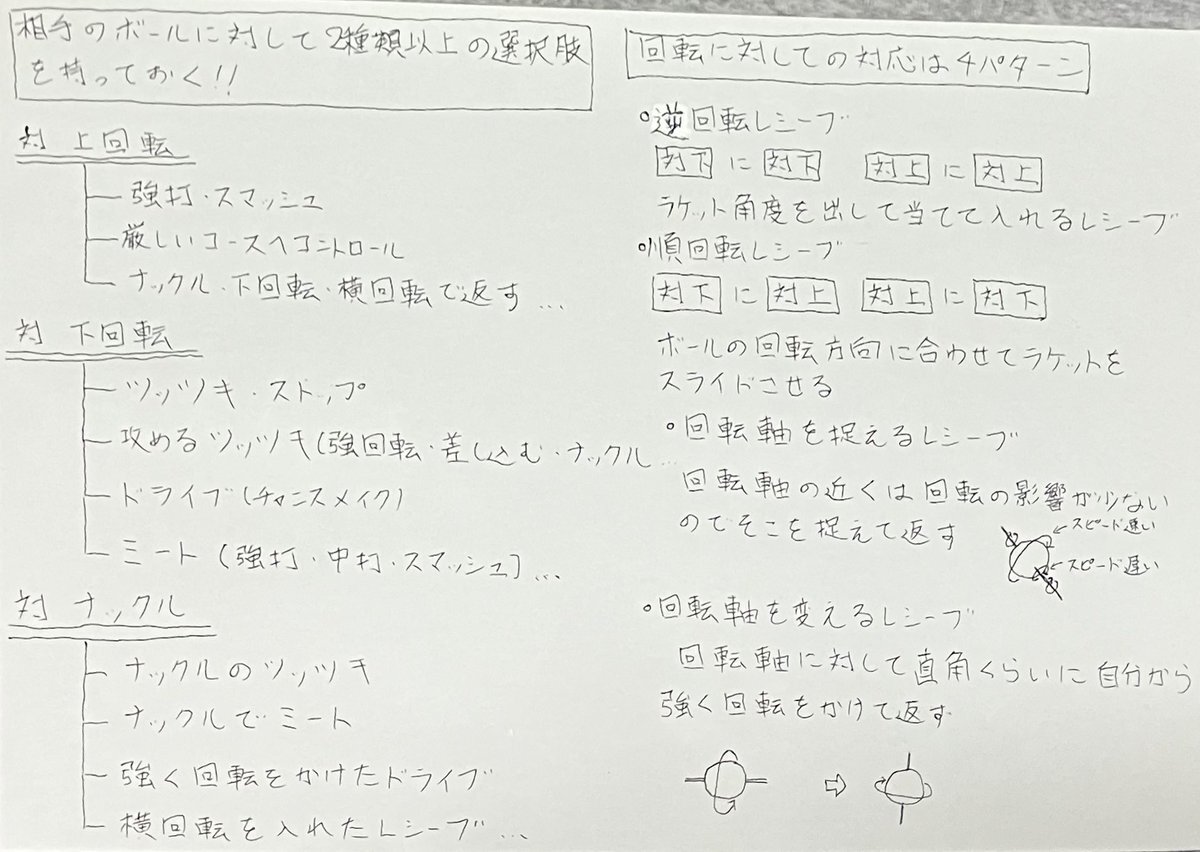 相手のボールに対して2種類以上の選択肢
を持っておく!!
対 上回転
強打・スマッシュ
厳しいコースへコントロール
ナックル・下回転・横回転で返す...
対 下回転
ツッツキ・ストップ
攻めるツッツキ(強回転・差し込む・ナックル...
ドライブ(チャンスメイク)
ミート(強打・中打・スマッシュ)...
対 ナックル
ナックルのツッツキ
ナックルでミート
強く回転をかけたドライブ
横回転を入れたレシーブ...
回転に対しての対応は4パターン
○逆回転レシーブ
対下に対下 対上に対上
ラケット角度を出して当てて入れるレシーブ
○順回転レシーブ
対下に対上 対上に対下
ボールの回転方向に合わせてラケットを
スライドさせる
○回転軸を捉えるレシーブ
回転軸の近くは回転の影響が少ない
のでそこを捉えて返す
←スピード速い
←スピード遅い
○回転軸を変えるレシーブ
回転軸に対して直角くらいに自分から
強く回転をかけて返す